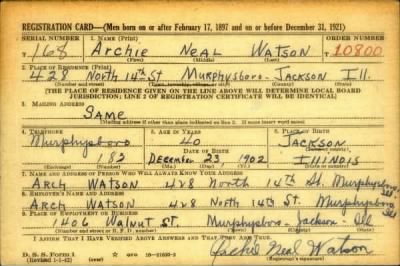 REGISTRATION CARD—(Men born on or after February 17, 1897 and on or before December 31, 1921)
SERIAL NUMBER 1. NAME (Print) ORDER NUMBER
168 Archie Neal Watson 10800
(First) (Middle) (Last)
2. PLACE OF RESIDENCE (Print)
428 North 14th St Murphysboro - Jackson Ill.
[THE PLACE OF RESIDENCE GIVEN ON THE LINE ABOVE WILL DETERMINE LOCAL BOARD
JURISDICTION; LINE 2 OF REGISTRATION CERTIFICATE WILL BE IDENTICAL]
3. MAILING ADDRESS
SAME
[Mailing address if other than place indicated on line 2. If same insert word same]
4. TELEPHONE 5. AGE IN YEARS 6. PLACE OF BIRTH
Murphysboro 40 Jackson
DATE OF BIRTH
182 December 23, 1902 Illinois
(Exchange) (Number) (Mo.) (Day) (Yr.)
7. NAME AND ADDRESS OF PERSON WHO WILL ALWAYS KNOW YOUR ADDRESS
Arch Watson 428 North 14th St. Murphysboro
8. EMPLOYER'S NAME AND ADDRESS
Arch Watson 428 North 14th St. Murphysboro
9. PLACE OF EMPLOYMENT OR BUSINESS
1406 Walnut St. Murphysboro - Jackson - Ill
I AFFIRM THAT I HAVE VERIFIED ABOVE ANSWERS AND THAT THEY ARE TRUE.
D. S. S. Form 1
(Revised 1-1-42)
Archie Neal Watson